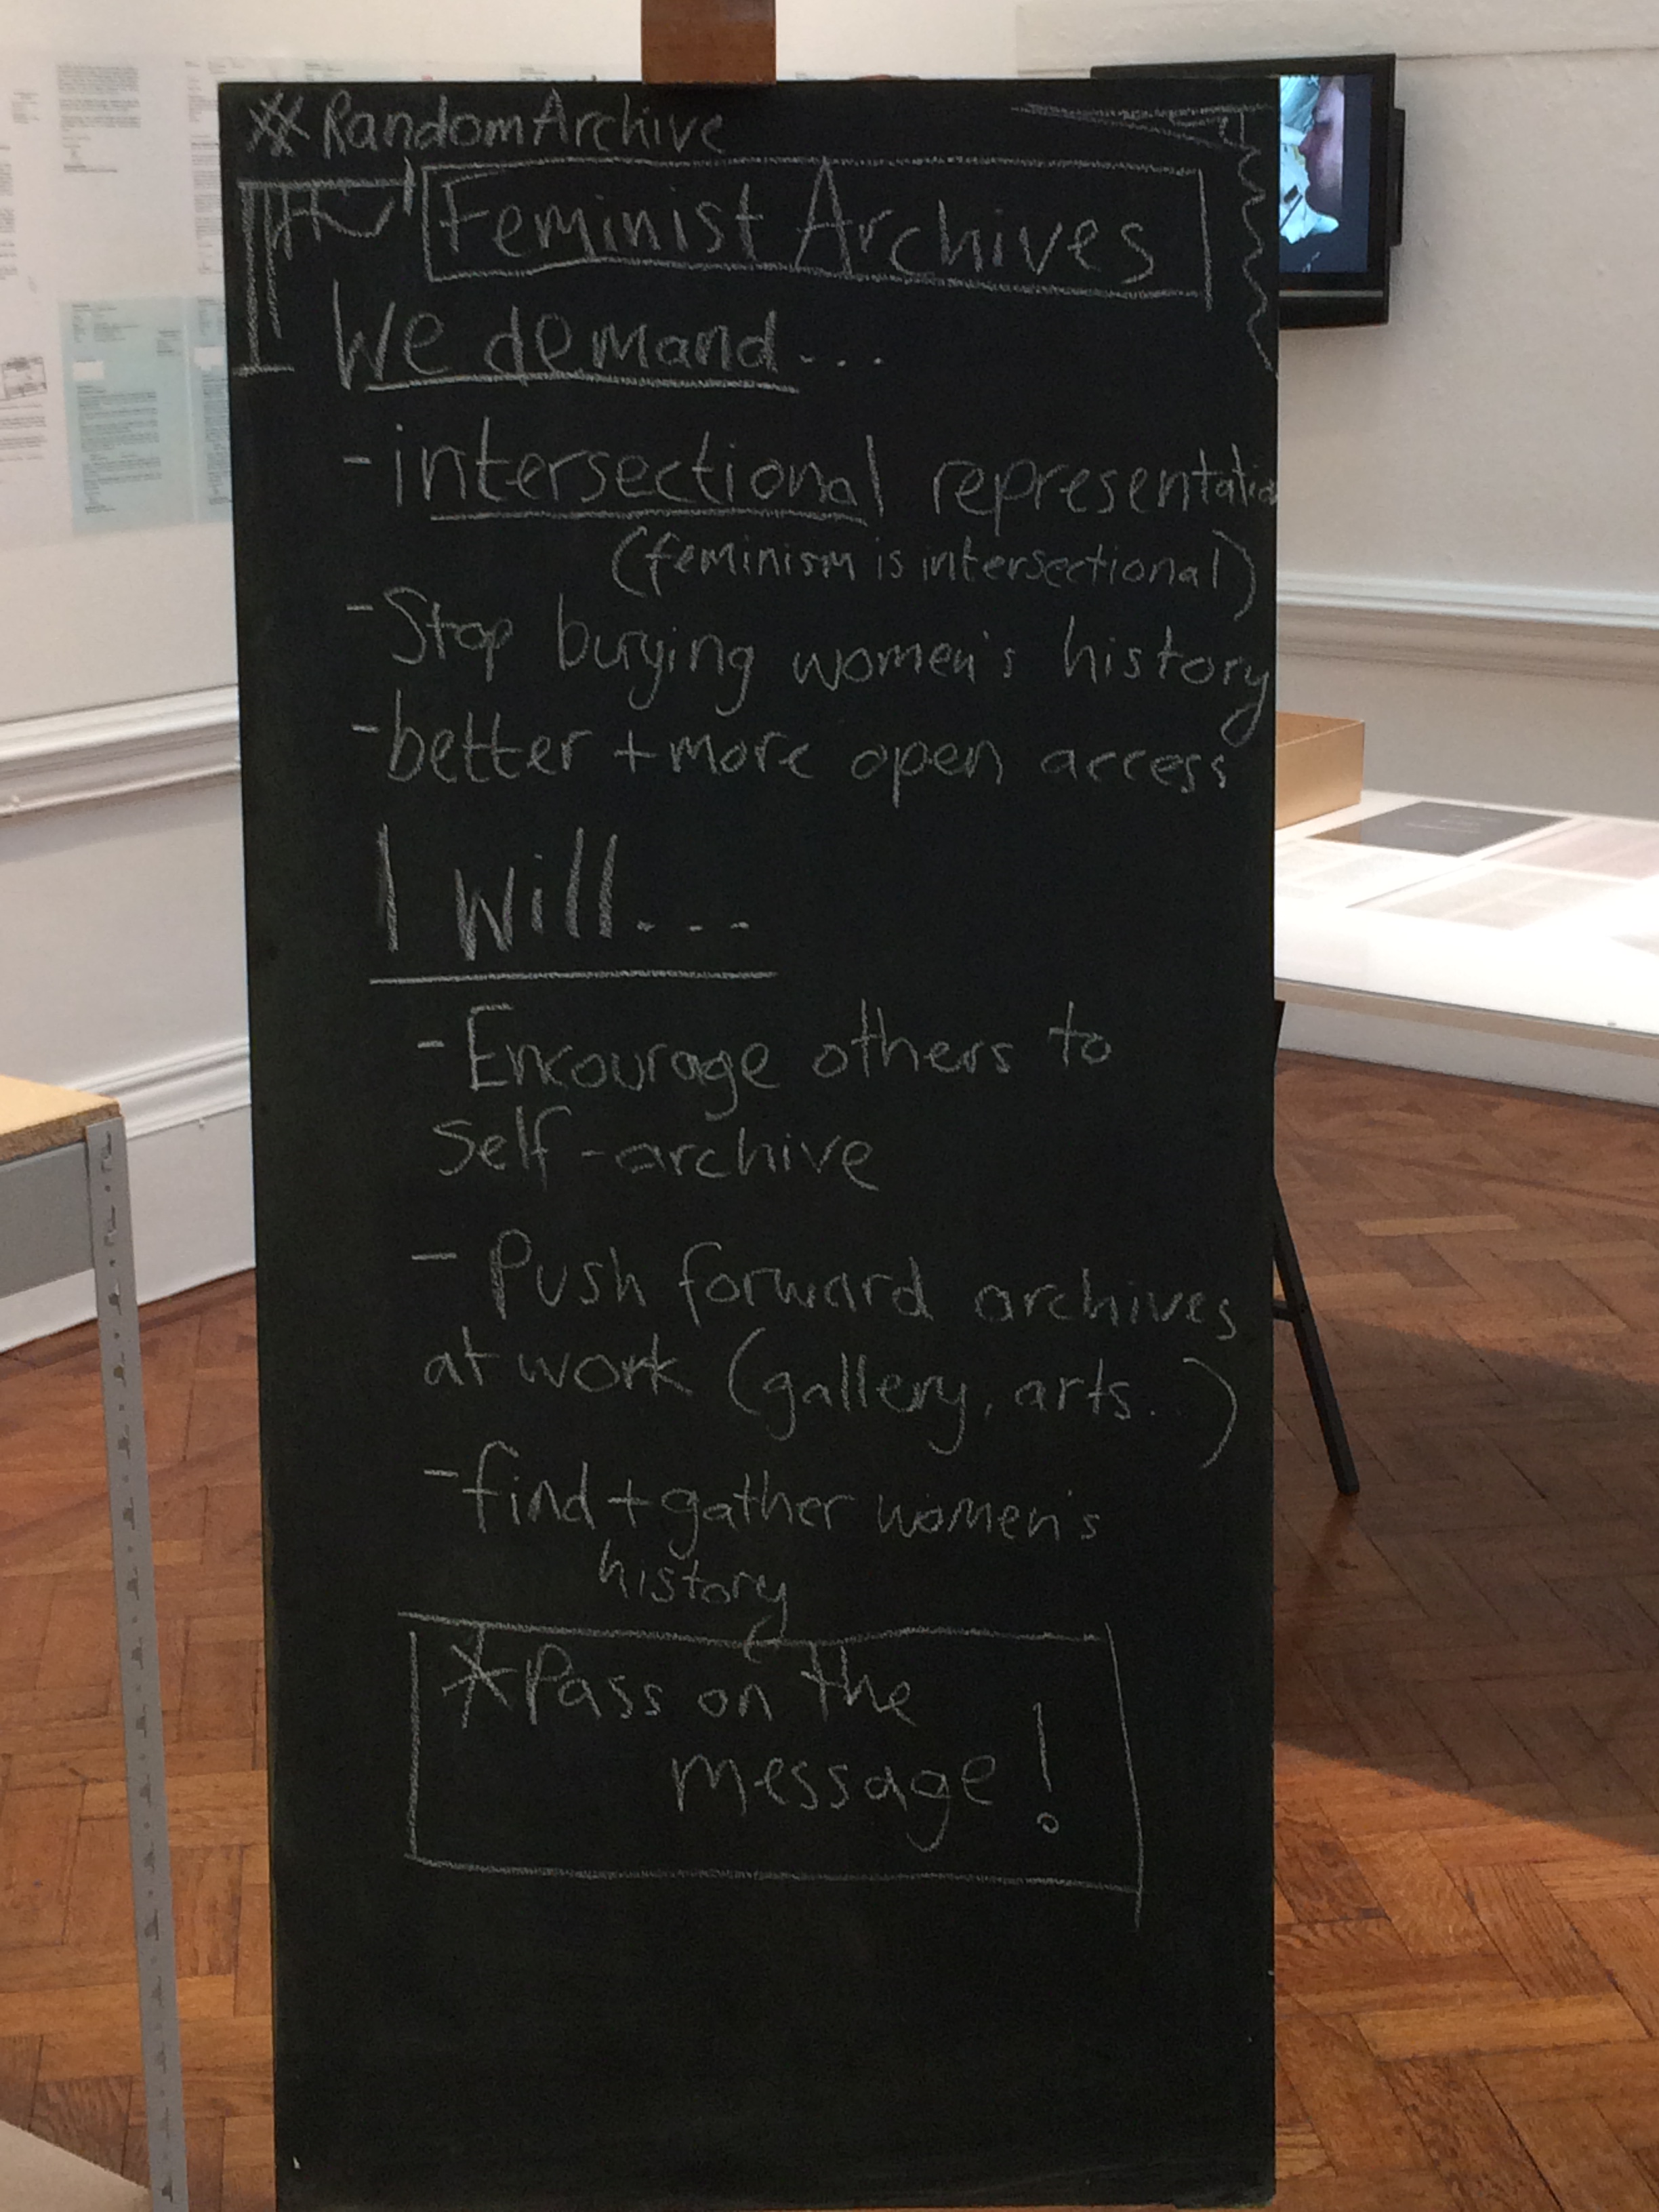 #RandomArchive
Feminist Archives
We demand...
- intersectional representation
(feminism is intersectional)
- Stop burying women's history
- better + more open access
I will...
- Encourage others to
self-archive
- Push forward archives
at work (gallery, arts...)
- find + gather women's
history
*Pass on the
message!